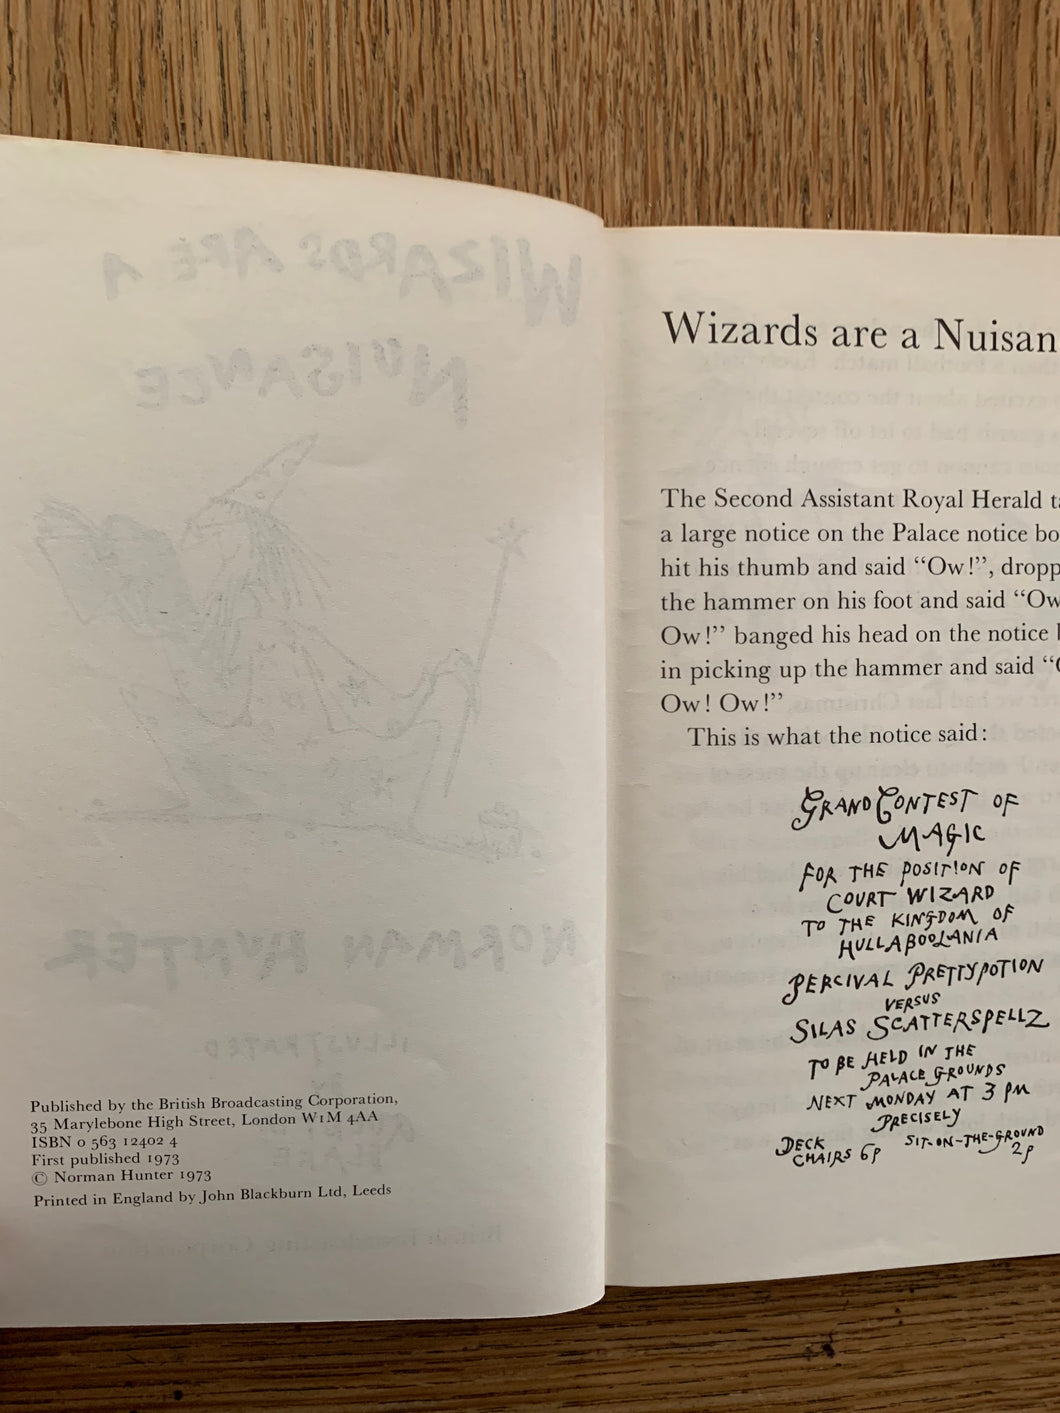 WIZARDS ARE A
NUISANCE
NORMAN HUNTER
ILLUSTRATED
BY
BLAKE
Published by the British Broadcasting Corporation,
35 Marylebone High Street, London W1M 4AA
ISBN 0 563 12402 4
First published 1973
© Norman Hunter 1973
Printed in England by John Blackburn Ltd, Leeds
British Broadcasting Corporation
Wizards are a Nuisan
The Second Assistant Royal Herald
a large notice on the Palace notice bo
hit his thumb and said “Ow!”, dropp
the hammer on his foot and said “Ow
Ow!” banged his head on the notice
in picking up the hammer and said
Ow! Ow!”
This is what the notice said:
GRAND CONTEST OF
MAGIC
FOR THE POSITION OF
COURT WIZARD
TO THE KINGDOM OF
HULLABOOLANIA
PERCIVAL PRETTYPOTION
VERSUS
SILAS SCATTERSPELLZ
TO BE HELD IN THE
PALACE GROUNDS
NEXT MONDAY AT 3 PM
PRECISELY
DECK CHAIRS 6p
SIT-ON-THE-GROUND 2p